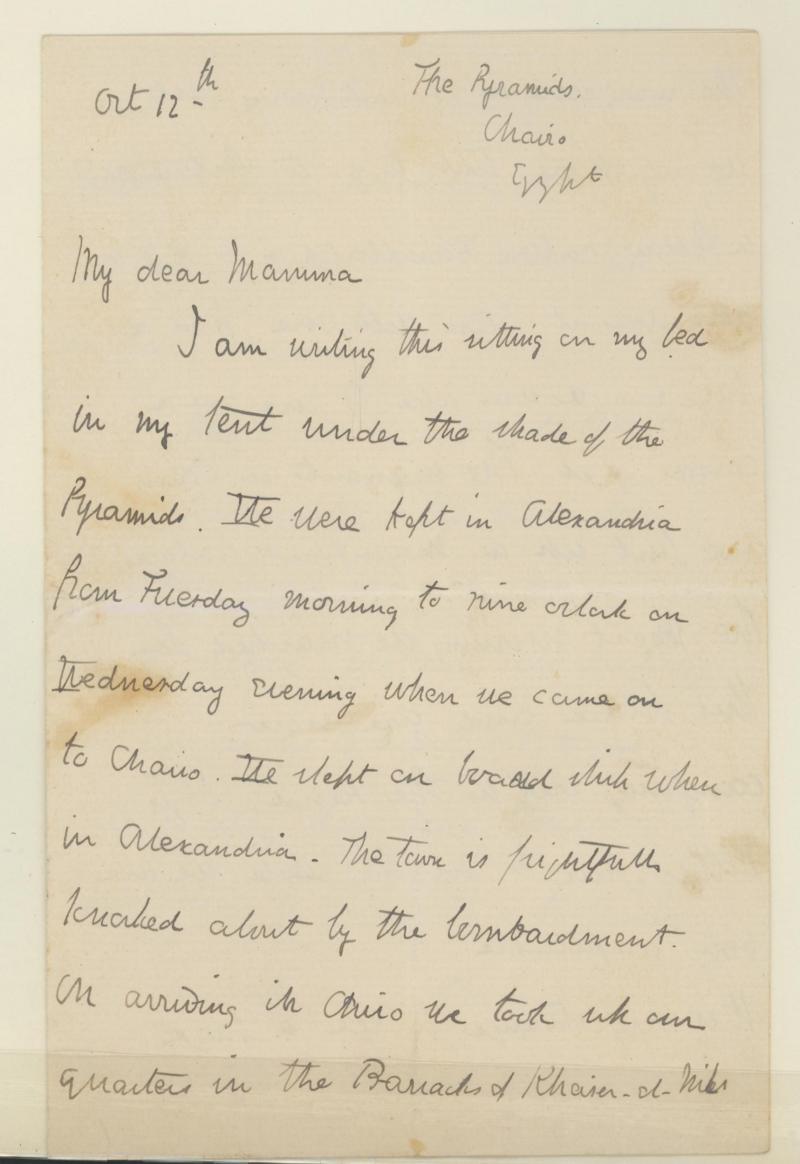 Oct 12th
The Pyramids.
Chairo
Egypt
My dear Mamma
I am writing this sitting on my bed
in my tent under the shade of the
Pyramids. We were kept in Alexandria
from Tuesday morning to nine oclock on
Wednesday evening when we came on
to Chairo. We slept on board ship when
in Alexandria - The town is frightfully
knocked about by the bombardment.
On arriving in Chiro we took up our
quarters in the Barracks of Khaiser-el-Niles